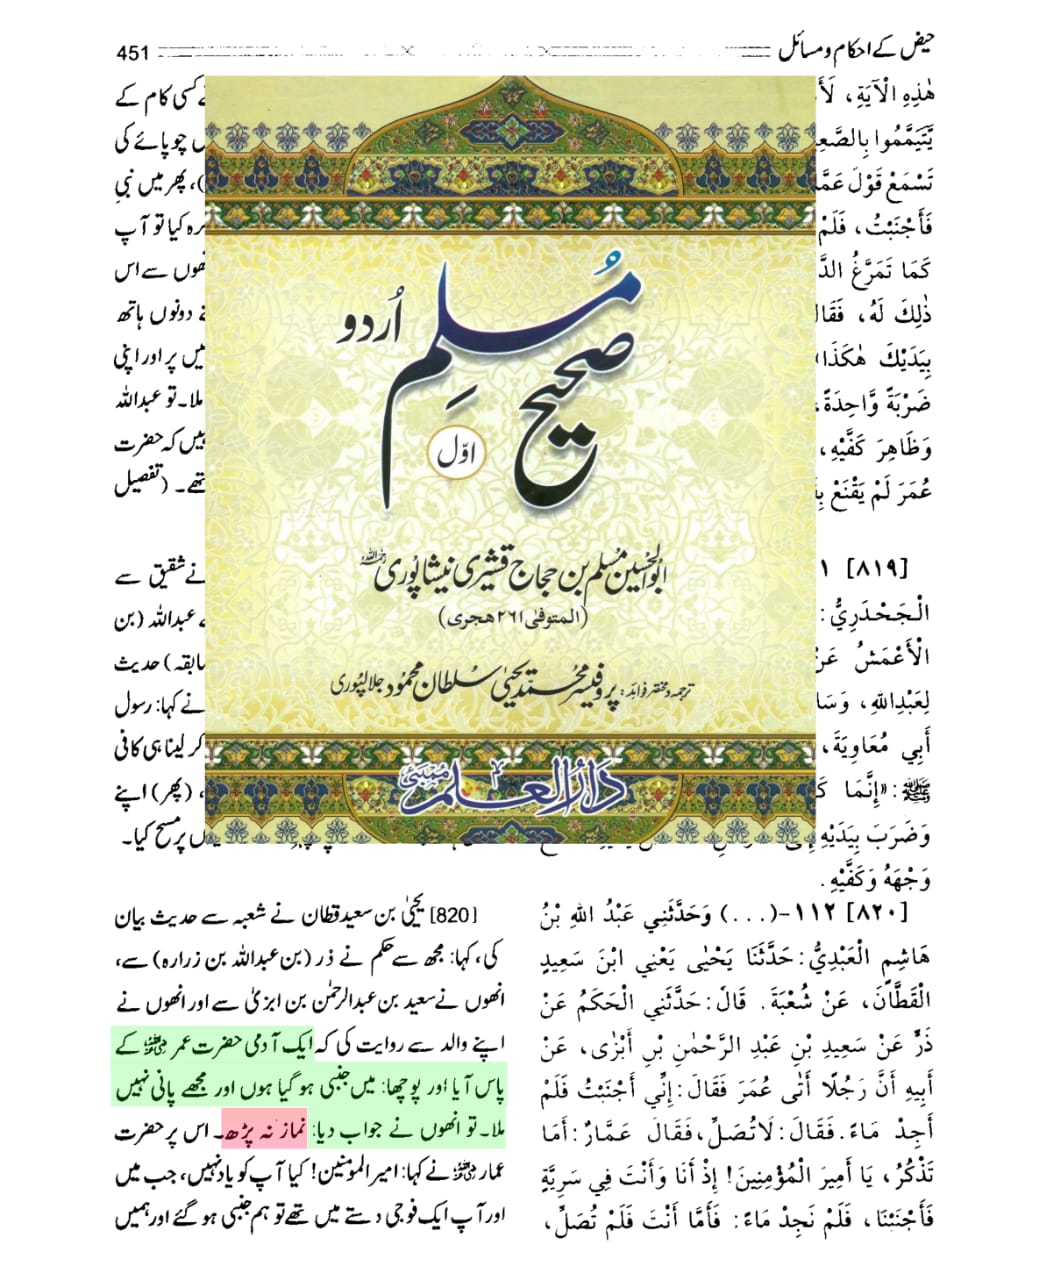 حیض کے احکام و مسائل
451
هٰذِهِ الْآيَةِ،
يَّتَيَمَّمُوا بِالصَّعِ
تَسْمَعْ قَوْلَ عَمَّا
فَأَجْنَبْتُ، فَلَمْ
كَمَا تَمَرَّغُ الدَّ
ذٰلِكَ لَهُ، فَقَا
بِيَدَيْكَ هٰكَذَا
ضَرْبَةً وَّاحِدَةً،
وَظَاهِرَ كَفَّيْهِ،
عُمَرَ لَمْ يَقْنَعْ
کسی کام کے
چوپائے کی
، پھر میں نبی
رہ کیا تو آپ
ھوں سے اس
دونوں ہاتھ
یں پر اور اپنی
ملا۔ تو عبداللہ
ہیں کہ حضرت
تھے۔ (تفصیل
صحیح مسلم اُردو
اوّل
ابوالحسین مسلم بن حجاج قشیری نیشاپوری رحمہ اللہ
(المتوفی ۲۶۱ ہجری)
ترجمہ و مختصر فوائد: پروفیسر محمد یحییٰ سلطان محمود جلالپوری
دارالعلم ممبئی
[٨١٩] ١
الْجَحْدَرِيُّ:
الْأَعْمَشُ عَنْ
لِعَبْدِاللهِ، وَسَا
أَبِي مُعَاوِيَةَ،
ﷺ: «إِنَّمَا
وَضَرَبَ بِيَدَيْهِ
وَجْهَهُ وَكَفَّيْهِ.
نے شقیق سے
عبداللہ (بن
سابقہ) حدیث
نے کہا: رسول
کر لینا ہی کافی
، (پھر) اپنے
پر مسح کیا۔
[٨٢٠] ١١٢-(...) وَحَدَّثَنِي عَبْدُ اللهِ بْنُ
هَاشِمٍ الْعَبْدِيُّ: حَدَّثَنَا يَحْيٰى يَعْنِي ابْنَ سَعِيدٍ
الْقَطَّانَ، عَنْ شُعْبَةَ. قَالَ: حَدَّثَنِي الْحَكَمُ عَنْ
ذَرٍّ عَنْ سَعِيدِ بْنِ عَبْدِ الرَّحْمٰنِ بْنِ أَبْزٰى، عَنْ
أَبِيهِ أَنَّ رَجُلًا أَتٰى عُمَرَ فَقَالَ: إِنِّي أَجْنَبْتُ فَلَمْ
أَجِدْ مَاءً. فَقَالَ: لَاتُصَلِّ، فَقَالَ عَمَّارٌ: أَمَا
تَذْكُرُ، يَا أَمِيرَ الْمُؤْمِنِينَ! إِذْ أَنَا وَأَنْتَ فِي سَرِيَّةٍ
فَأَجْنَبْنَا، فَلَمْ نَجِدْ مَاءً: فَأَمَّا أَنْتَ فَلَمْ تُصَلِّ،
[820] یحییٰ بن سعید قطان نے شعبہ سے حدیث بیان
کی، کہا: مجھ سے حکم نے ذر (بن عبداللہ بن زرارہ) سے،
انھوں نے سعید بن عبدالرحمٰن بن ابزیٰ سے اور انھوں نے
اپنے والد سے روایت کی کہ ایک آدمی حضرت عمر رضی اللہ عنہ کے
پاس آیا اور پوچھا: میں جنبی ہو گیا ہوں اور مجھے پانی نہیں
ملا۔ تو انھوں نے جواب دیا: نماز نہ پڑھ۔ اس پر حضرت
عمار رضی اللہ عنہ نے کہا: امیر المؤمنین! کیا آپ کو یاد نہیں، جب میں
اور آپ ایک فوجی دستے میں تھے تو ہم جنبی ہو گئے اور ہمیں